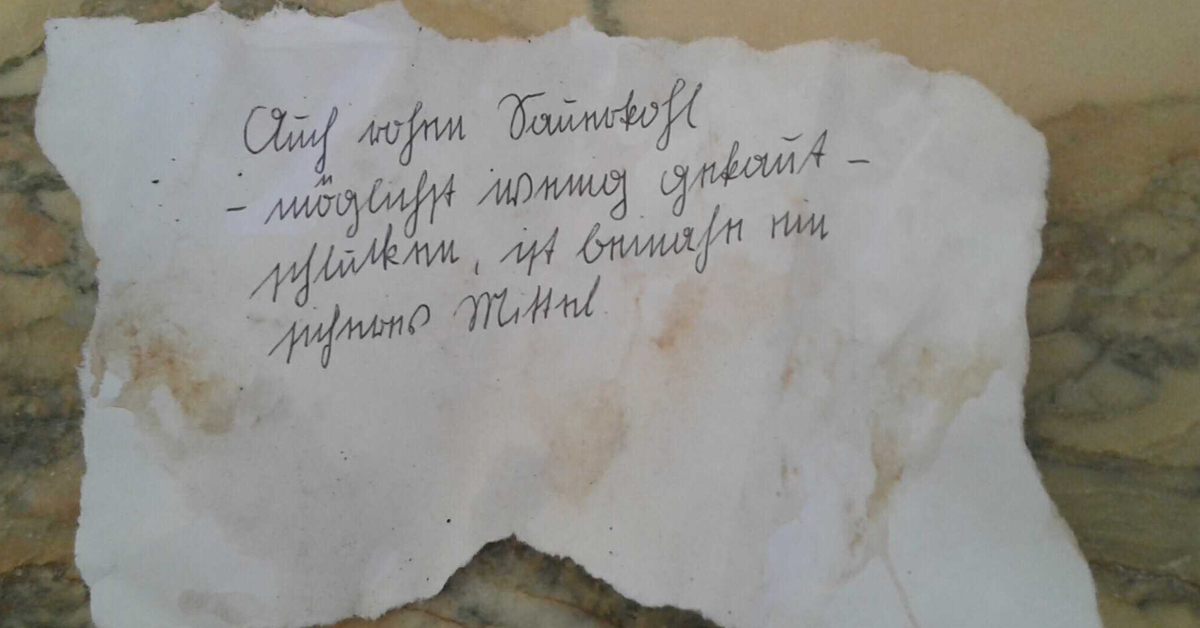 Auch rohen Sauerkohl
- möglichst wenig gekaut -
schlucken, ist beinahe ein
sicheres Mittel